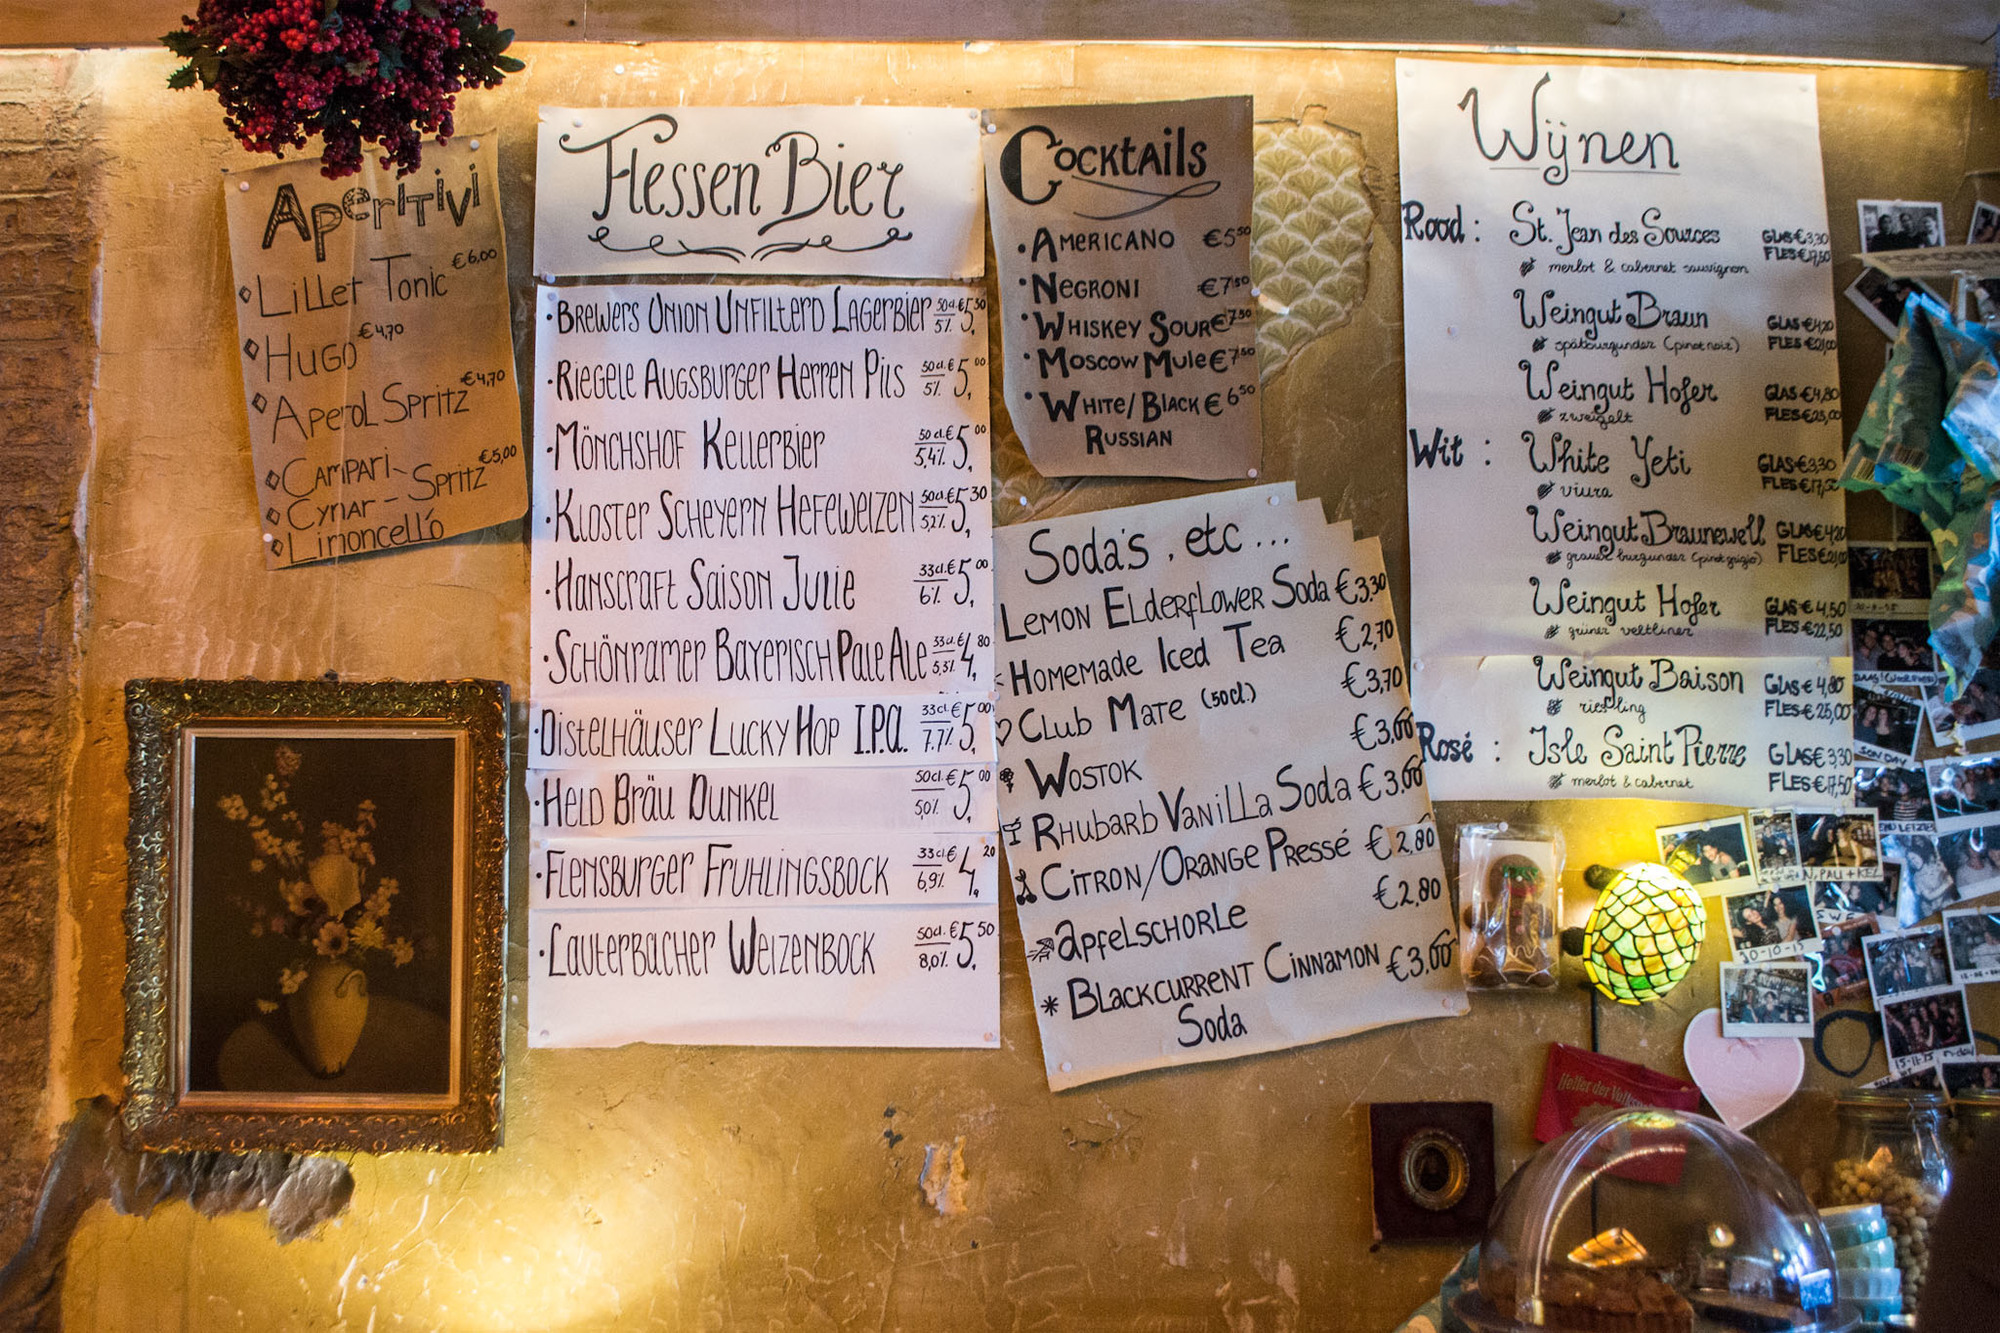 Aperitivi
Lillet Tonic €6,00
Hugo €4,70
Aperol Spritz €4,70
Campari-
Cynar - Spritz €5,00
Limoncello
Flessen Bier
Brewers Union Unfilterd Lagerbier 50cl. 5% €5,50
Riegele Augsburger Herren Pils 50cl. 5% €5,00
Mönchshof Kellerbier 50cl. 5,4% €5,00
Kloster Scheyern Hefeweizen 50cl. 5,2% €5,30
Hanscraft Saison Julie 33cl. 6% €5,00
Schönramer Bayerisch Pale Ale 33cl. 5,3% €4,80
Distelhäuser Lucky Hop I.P.A. 33cl. 7.7% €5,00
Held Bräu Dunkel 50cl. 5,0% €5,00
Flensburger Fruhlingsbock 33cl. 6,9% €4,20
Lauterbacher Weizenbock 50cl. 8,0% €5,50
Cocktails
Americano €5,50
Negroni €7,50
Whiskey Sour €7,50
Moscow Mule €7,50
White/Black €6,50
Russian
Soda's, etc...
Lemon Elderflower Soda €3.30
Homemade Iced Tea €2,70
Club Mate (50cl.) €3,70
Wostok €3,00
Rhubarb Vanilla Soda €3.00
Citron/Orange Pressé €2,80
Apfelschorle €2,80
Blackcurrent Cinnamon €3.00
Soda
Wijnen
Rood: St. Jean des Sources GLAS €3,30
merlot & cabernet sauvignon FLES €17,50
Weingut Braun GLAS €4,20
spätburgunder (pinot noir) FLES €21,00
Weingut Hofer GLAS €4,80
zweigelt FLES €25,00
Wit: White Yeti GLAS €3,30
viura FLES €17,50
Weingut Braunewell GLAS €4,20
grauer burgunder (pinot grigio) FLES €21,00
Weingut Hofer GLAS €4,50
grüner veltliner FLES €22,50
Weingut Baison GLAS €4,80
riesling FLES €25,00
Rosé: Isle Saint Pierre GLAS €3,30
merlot & cabernet FLES €17,50
POPCORN
SON DAV
30-10-15
15-11-15
Helfer der